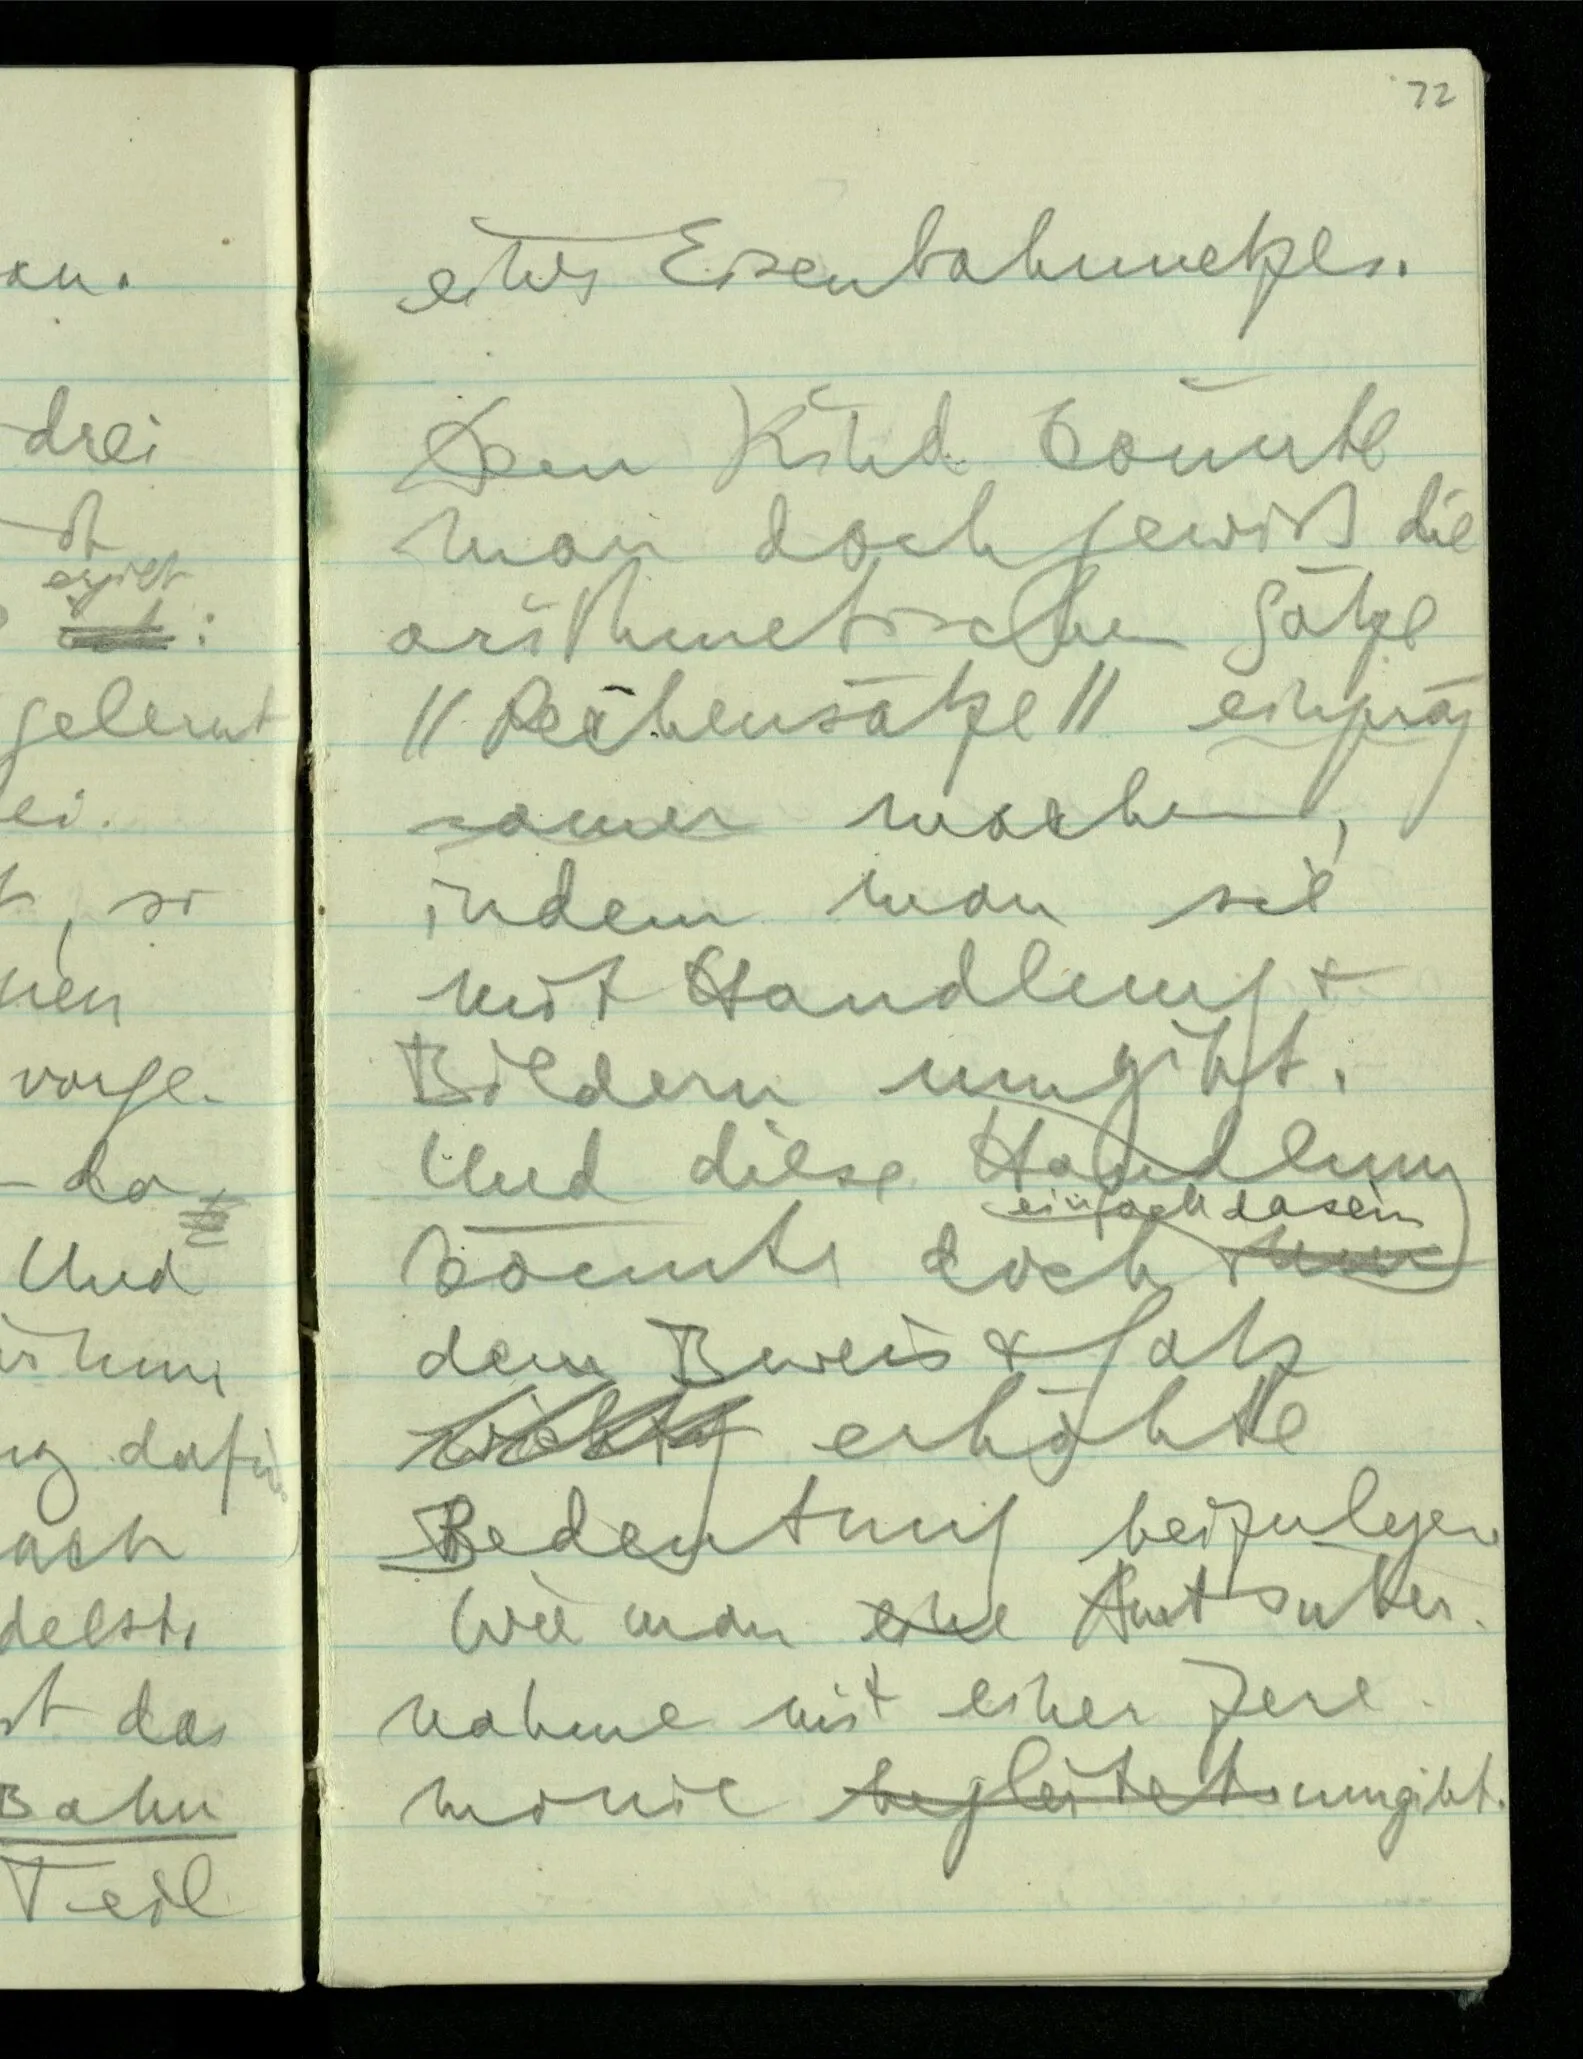 72
an.
drei
ist
ergibt
:
gelernt
ei.
t, so
nen
vorge-
- da
Und
nimm
ng dafür
ach
delst.
st das
Bahn
Teil
eines Eisenbahnnetzes.
Dem Kind könnte
man doch gewiß die
arithmetischen Sätze
// Rechensätze // einpräg
samer machen,
indem man sie
mit Handlung &
Bildern umgibt.
Und diese Handlung
einfach dasein
könnte doch nun
dem Beweis & Satz
wichtig erhöhte
Bedeutung beizulegen
Wie man eine Amtsüber-
nahme mit einer Zere-
monie begleitet umgibt.